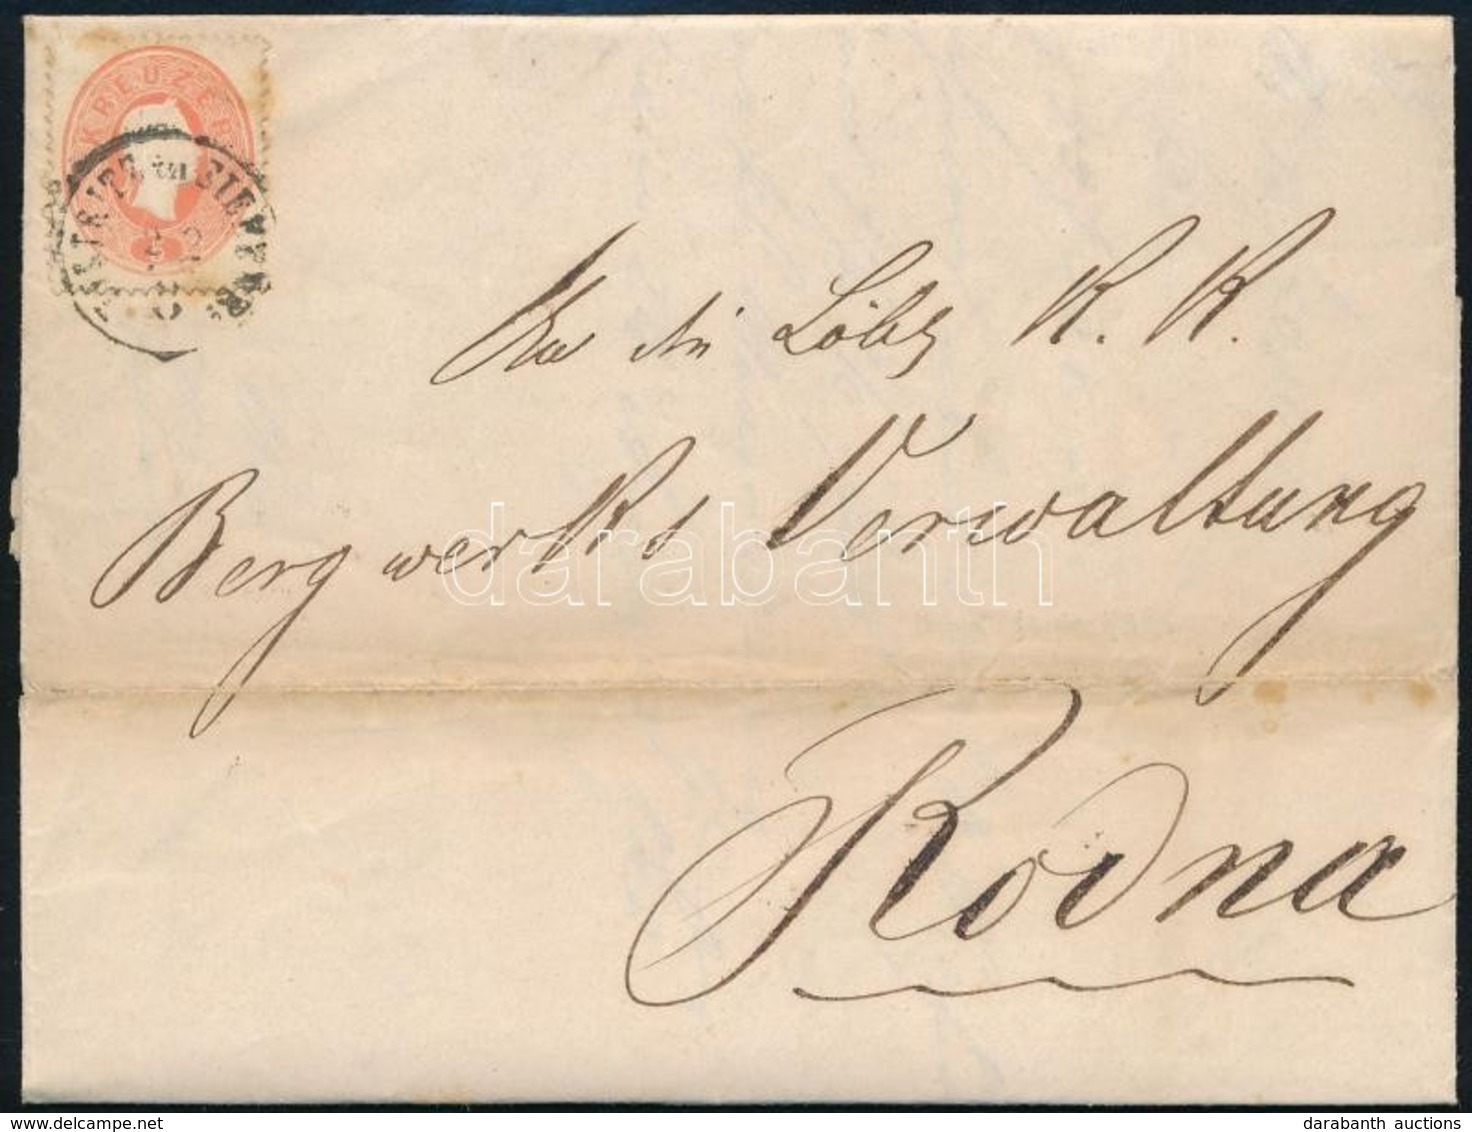 KREUZER
BISTRITZ in SIEBENBÜR:
An die Löbl K. K.
Bergwerks Verwaltung
Rodna
darabanth
www.delcampe.net
darabanth auctions